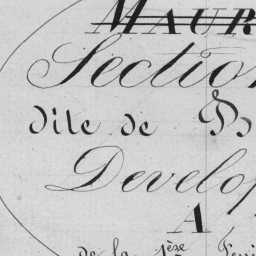 MAUR
Section
dite de B
Develop
A
de la 1ère Feui